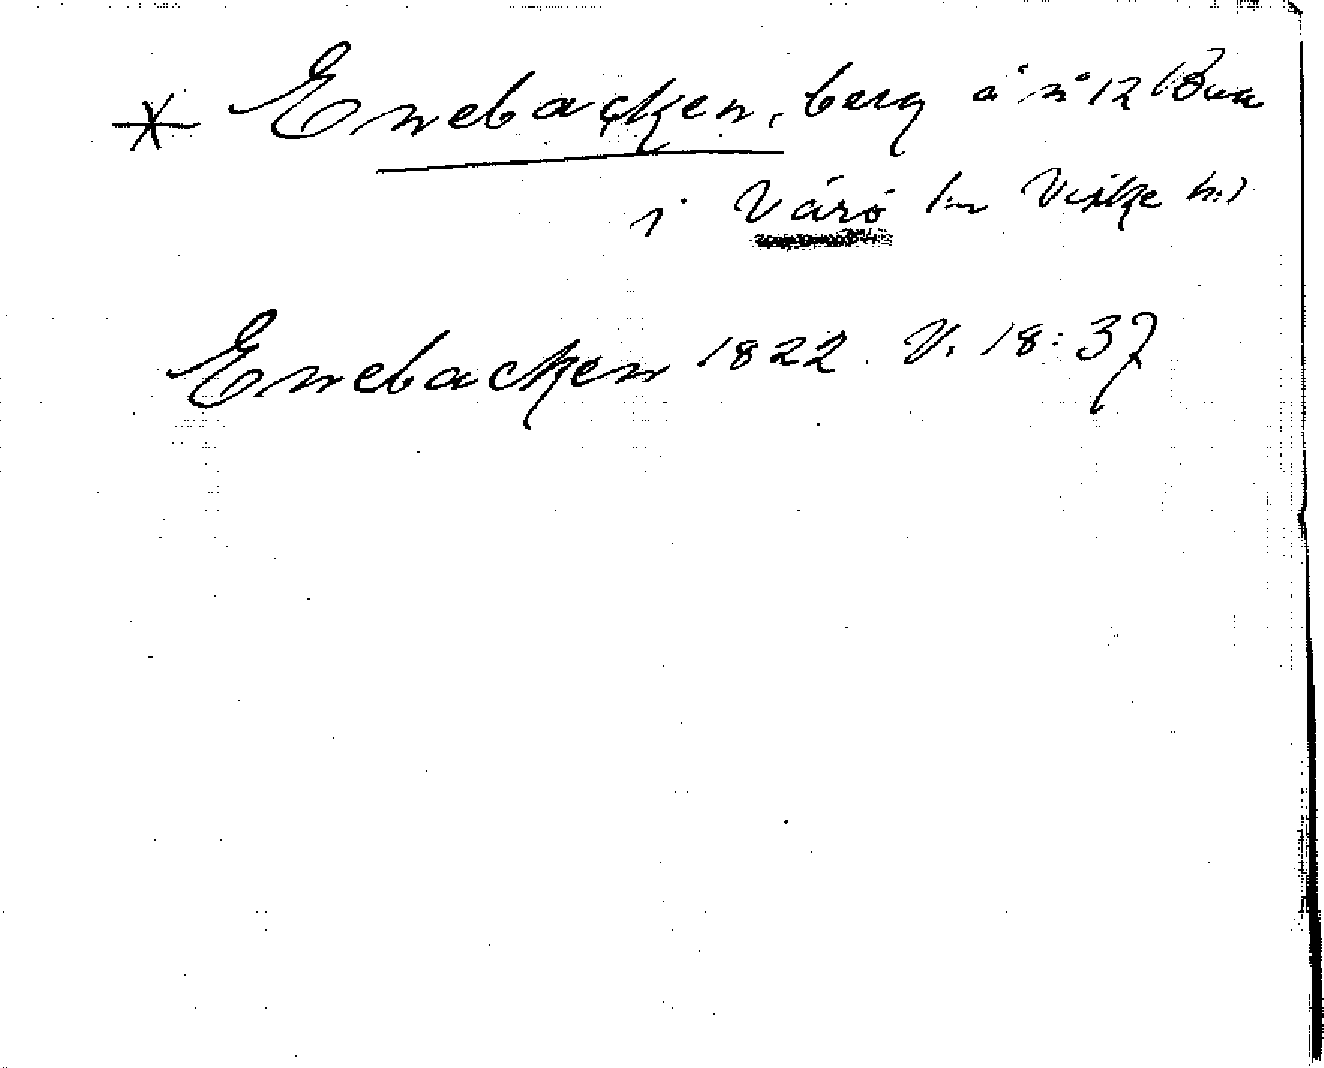 * Enebacken, berg å nº 12 Bua
i Värö sn Viske hd
Enebacken 1822. V. 18:37